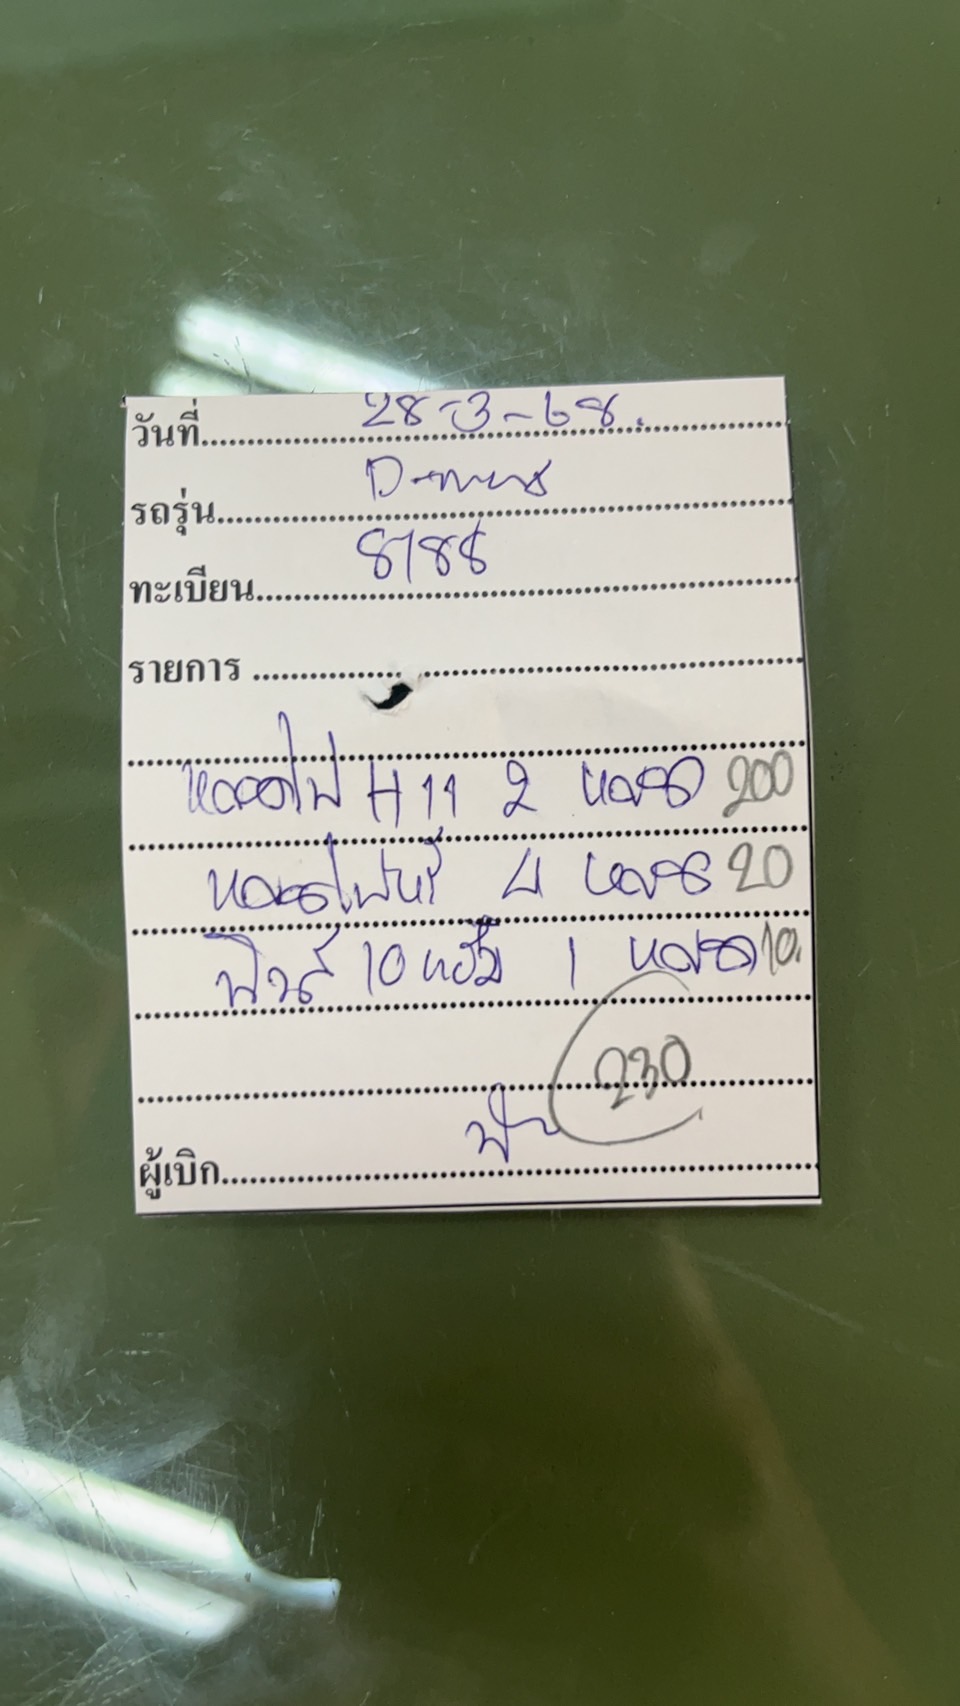 วันที่ 28-3-68.
รถรุ่น D-max
ทะเบียน 8188
รายการ
หลอดไฟ H11 2 หลอด 200
หลอดไฟหรี่ 4 หลอด 20
ฟิวส์ 10 แอม 1 หลอด 10.
230
ผู้เบิก